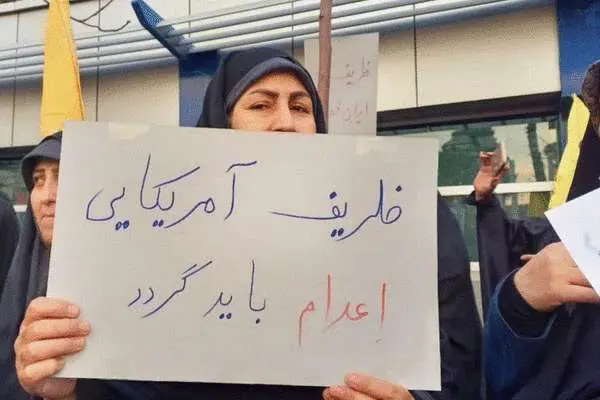 ظریف
ایران
ظریف آمریکایی
اعدام باید گردد